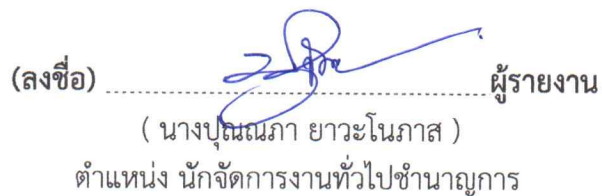 (ลงชื่อ) ............................................................ ผู้รายงาน
( นางปุณณภา ยาวะโนภาส )
ตำแหน่ง นักจัดการงานทั่วไปชำนาญการ